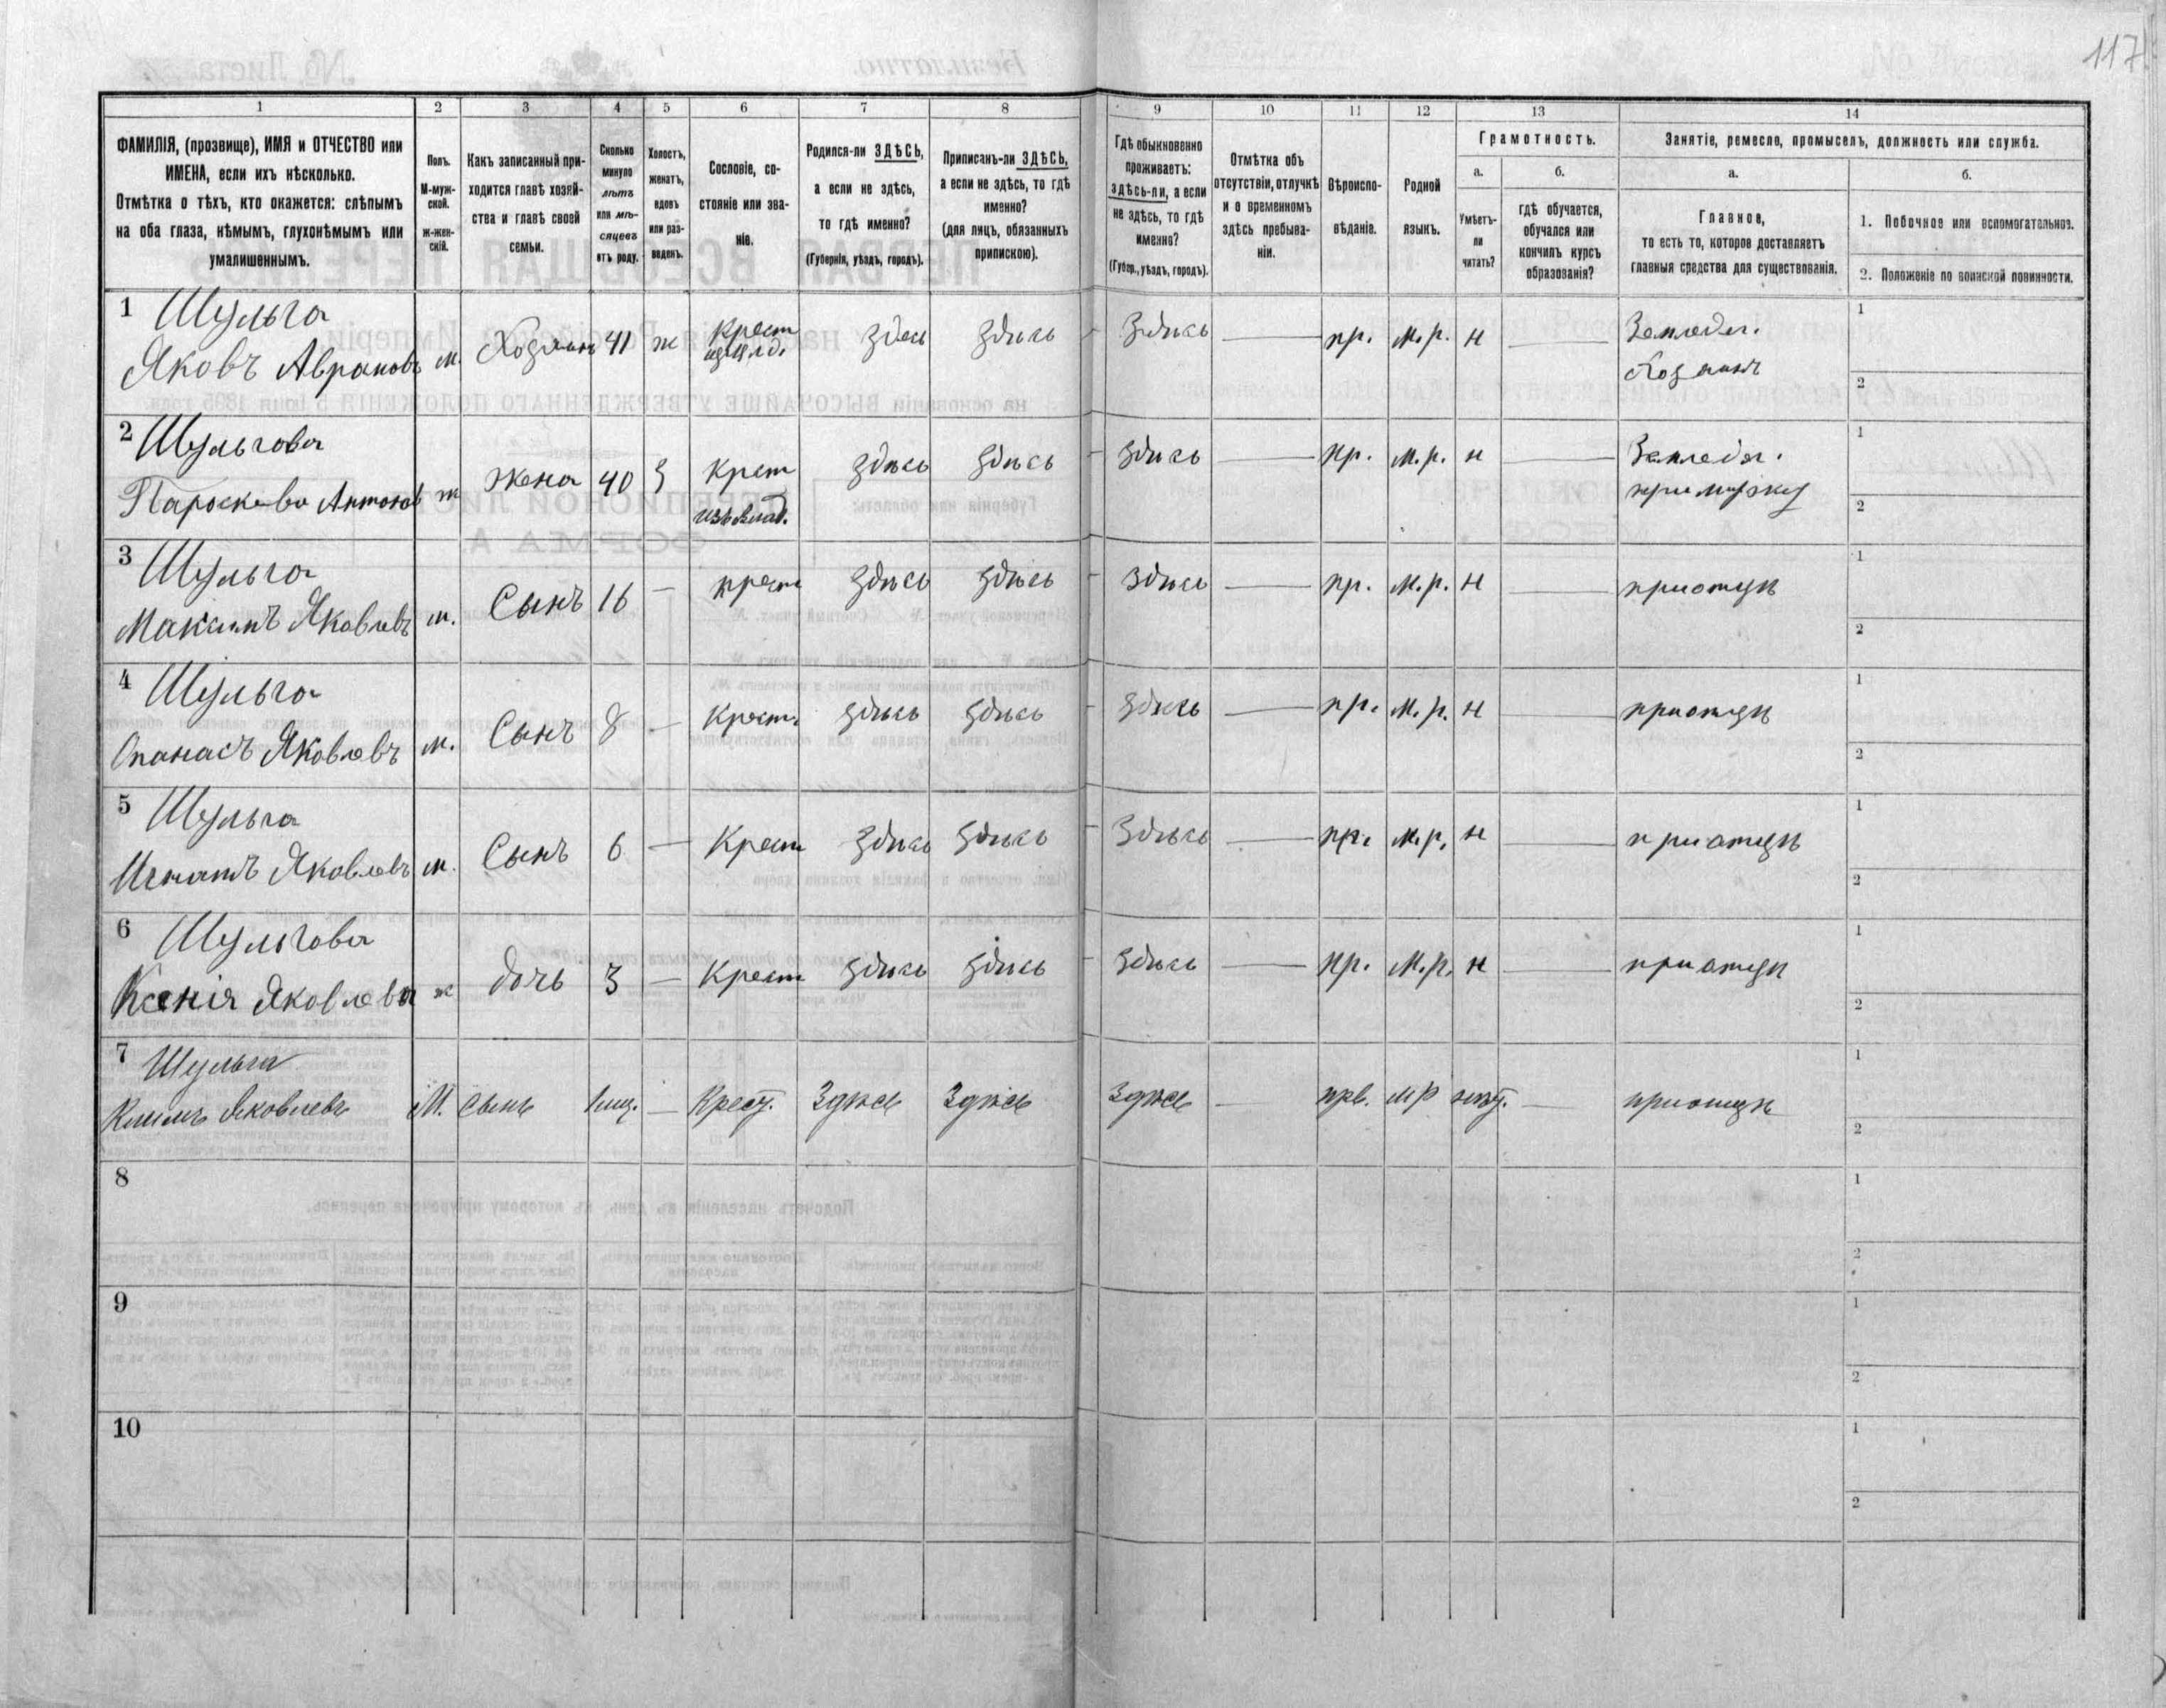 117
1 2 3 4 5 6 7 8 9 10 11 12 13 14
ФАМИЛІЯ, (прозвище), ИМЯ и ОТЧЕСТВО или
ИМЕНА, если ихъ нѣсколько.
Отмѣтка о тѣхъ, кто окажется: слѣпымъ
на оба глаза, нѣмымъ, глухонѣмымъ или
умалишеннымъ.
Полъ.
М-муж-
ской.
ж-жен-
скій.
Какъ записанный при-
ходится главѣ хозяй-
ства и главѣ своей
семьи.
Сколько
минуло
лѣтъ
или мѣ-
сяцевъ
отъ роду.
Холостъ,
женатъ,
вдовъ
или раз-
веденъ.
Сословіе, со-
стояніе или зва-
ніе.
Родился-ли ЗДѢСЬ,
а если не здѣсь,
то гдѣ именно?
(Губернія, уѣздъ, городъ).
Приписанъ-ли ЗДѢСЬ,
а если не здѣсь, то гдѣ
именно?
(для лицъ, обязанныхъ
припискою).
Гдѣ обыкновенно
проживаетъ:
здѣсь-ли, а если
не здѣсь, то гдѣ
именно?
(Губер., уѣздъ, городъ).
Отмѣтка объ
отсутствіи, отлучкѣ
и о временномъ
здѣсь пребыва-
ніи.
Вѣроиспо-
вѣданіе.
Родной
языкъ.
Грамотность.
а.
Умѣетъ-
ли
читать?
б.
гдѣ обучается,
обучался или
кончилъ курсъ
образованія?
Занятіе, ремесло, промыселъ, должность или служба.
а.
Главное,
то есть то, которое доставляетъ
главныя средства для существованія.
б.
1. Побочное или вспомогательное.
2. Положеніе по воинской повинности.
1 Шульга Крест Земледел. 1
Яковъ Аврамовъ м. Хозяинъ 41 ж здесь здѣсь здѣсь — пр. М.р. н — Хозяинъ 2
2 Шульгова Земледел. 1
Параскева Антонов ж жена 40 З Крест здѣсь здѣсь здѣсь — пр. М.р. н — при мужу 2
изъ влад.
3 Шульга 1
Максимъ Яковлевъ м. Сынъ 16 — крест здѣсь здѣсь здѣсь — пр. М.р. н — приотцѣ 2
4 Шульга 1
Опанасъ Яковлевъ м. Сынъ 8 — Крест. здѣсь здѣсь здѣсь — пр. М.р. н — приотцѣ 2
5 Шульга 1
Игнатъ Яковлевъ м. Сынъ 6 — Крест здѣсь здѣсь здѣсь — пр. М.р. н — приотцѣ 2
6 Шульгова 1
Ксенія Яковлева ж дочь 3 — Крест здѣсь здѣсь здѣсь — пр. М.р. н — приотцѣ 2
7 Шульга 1
Климъ Яковлевъ М. сынъ — Крест. Здѣсь Здѣсь Здѣсь — прв. МР — приотцѣ 2
8 1
2
9 1
2
10 1
2